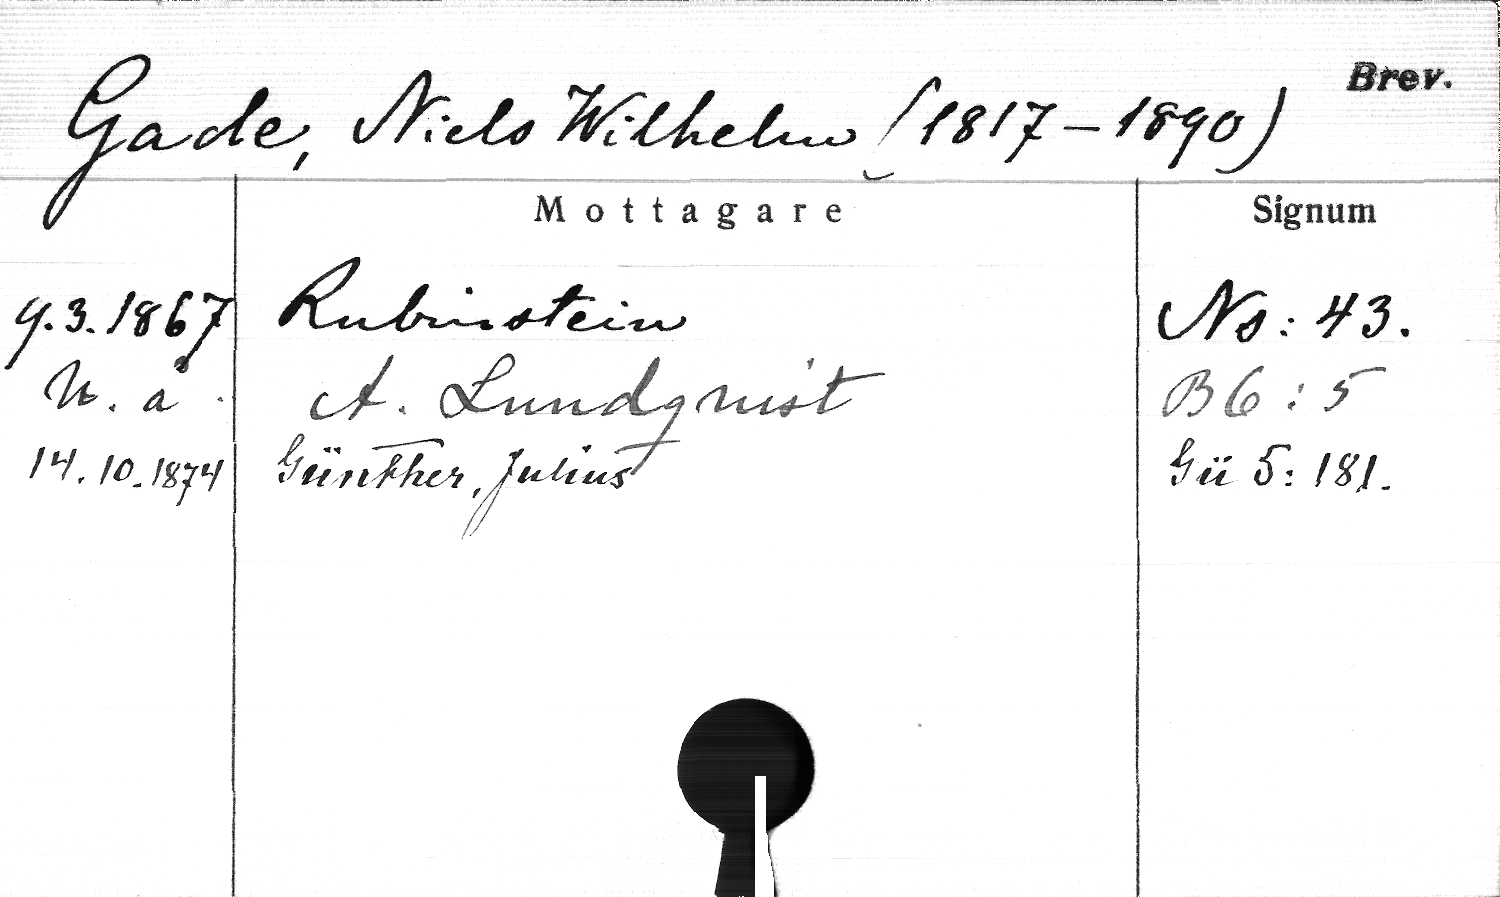 Brev.
Gade, Niels Wilhelm (1817-1890)
Mottagare Signum
9.3.1867 Rubinstein Ns: 43.
U. å. A. Lundqvist B6:5
14.10.1874 Günther, Julius Gü 5: 181.